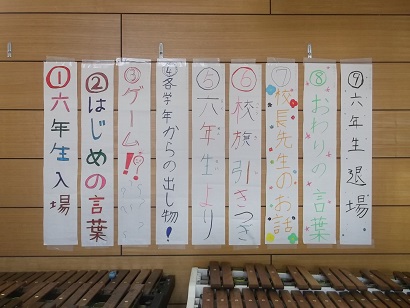 ①六年生入場
②はじめの言葉
③ゲーム!!
④各学年からの出し物!
⑤六年生より
⑥校旗引きつぎ
⑦校長先生のお話
⑧おわりの言葉
⑨六年生退場